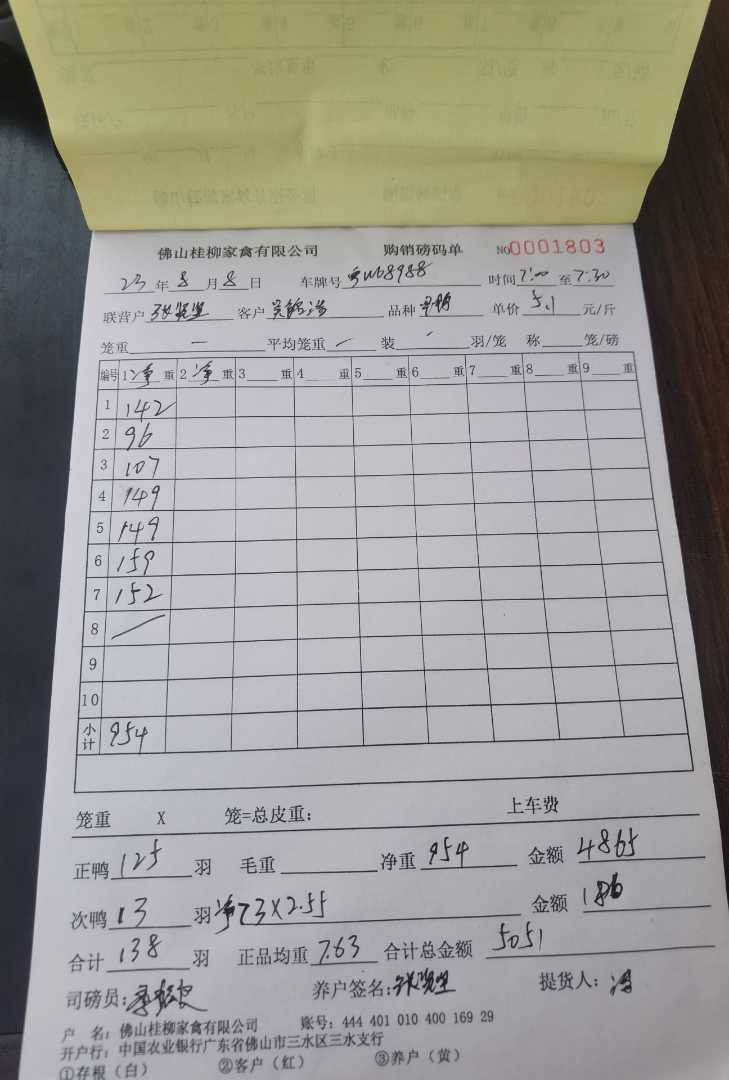 佛山桂柳家禽有限公司 购销磅码单 NO0001803
23年8月8日 车牌号粤W68988 时间7:00至7:30
联营户 客户 品种 单价5.1元/斤
笼重一 平均笼重 装 羽/笼 称 笼/磅
编号 1净重 2净重 3 重 4 重 5 重 6 重 7 重 8 重 9 重
1 142
2 96
3 107
4 149
5 149
6 159
7 152
8
9
10
小计 954
笼重 X 笼=总皮重: 上车费
正鸭125羽 毛重 净重954 金额4865
次鸭13羽净73X2.55 金额186
合计138羽 正品均重7.63 合计总金额5051
司磅员: 养户签名: 提货人:冯
户 名:佛山桂柳家禽有限公司 账号:444 401 010 400 169 29
开户行:中国农业银行广东省佛山市三水区三水支行
①存根(白) ②客户(红) ③养户(黄)